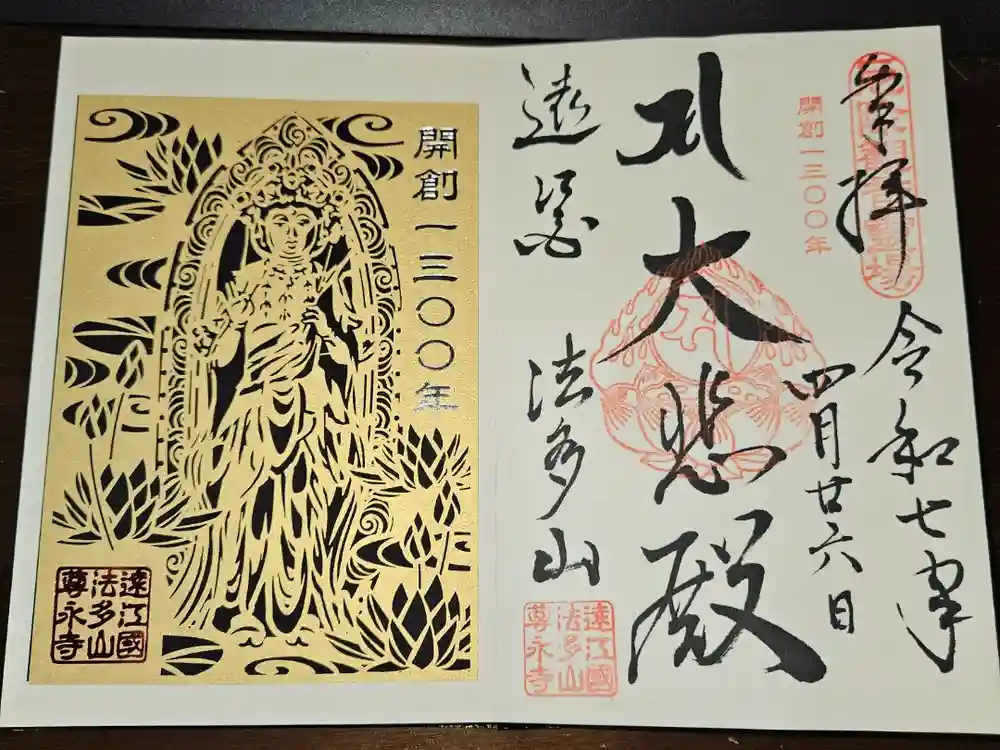 奉拝
開創一三〇〇年
令和七年
四月廿六日
大悲殿
遠江国 法多山
遠江國
法多山
尊永寺
開創一三〇〇年
遠江國
法多山
尊永寺